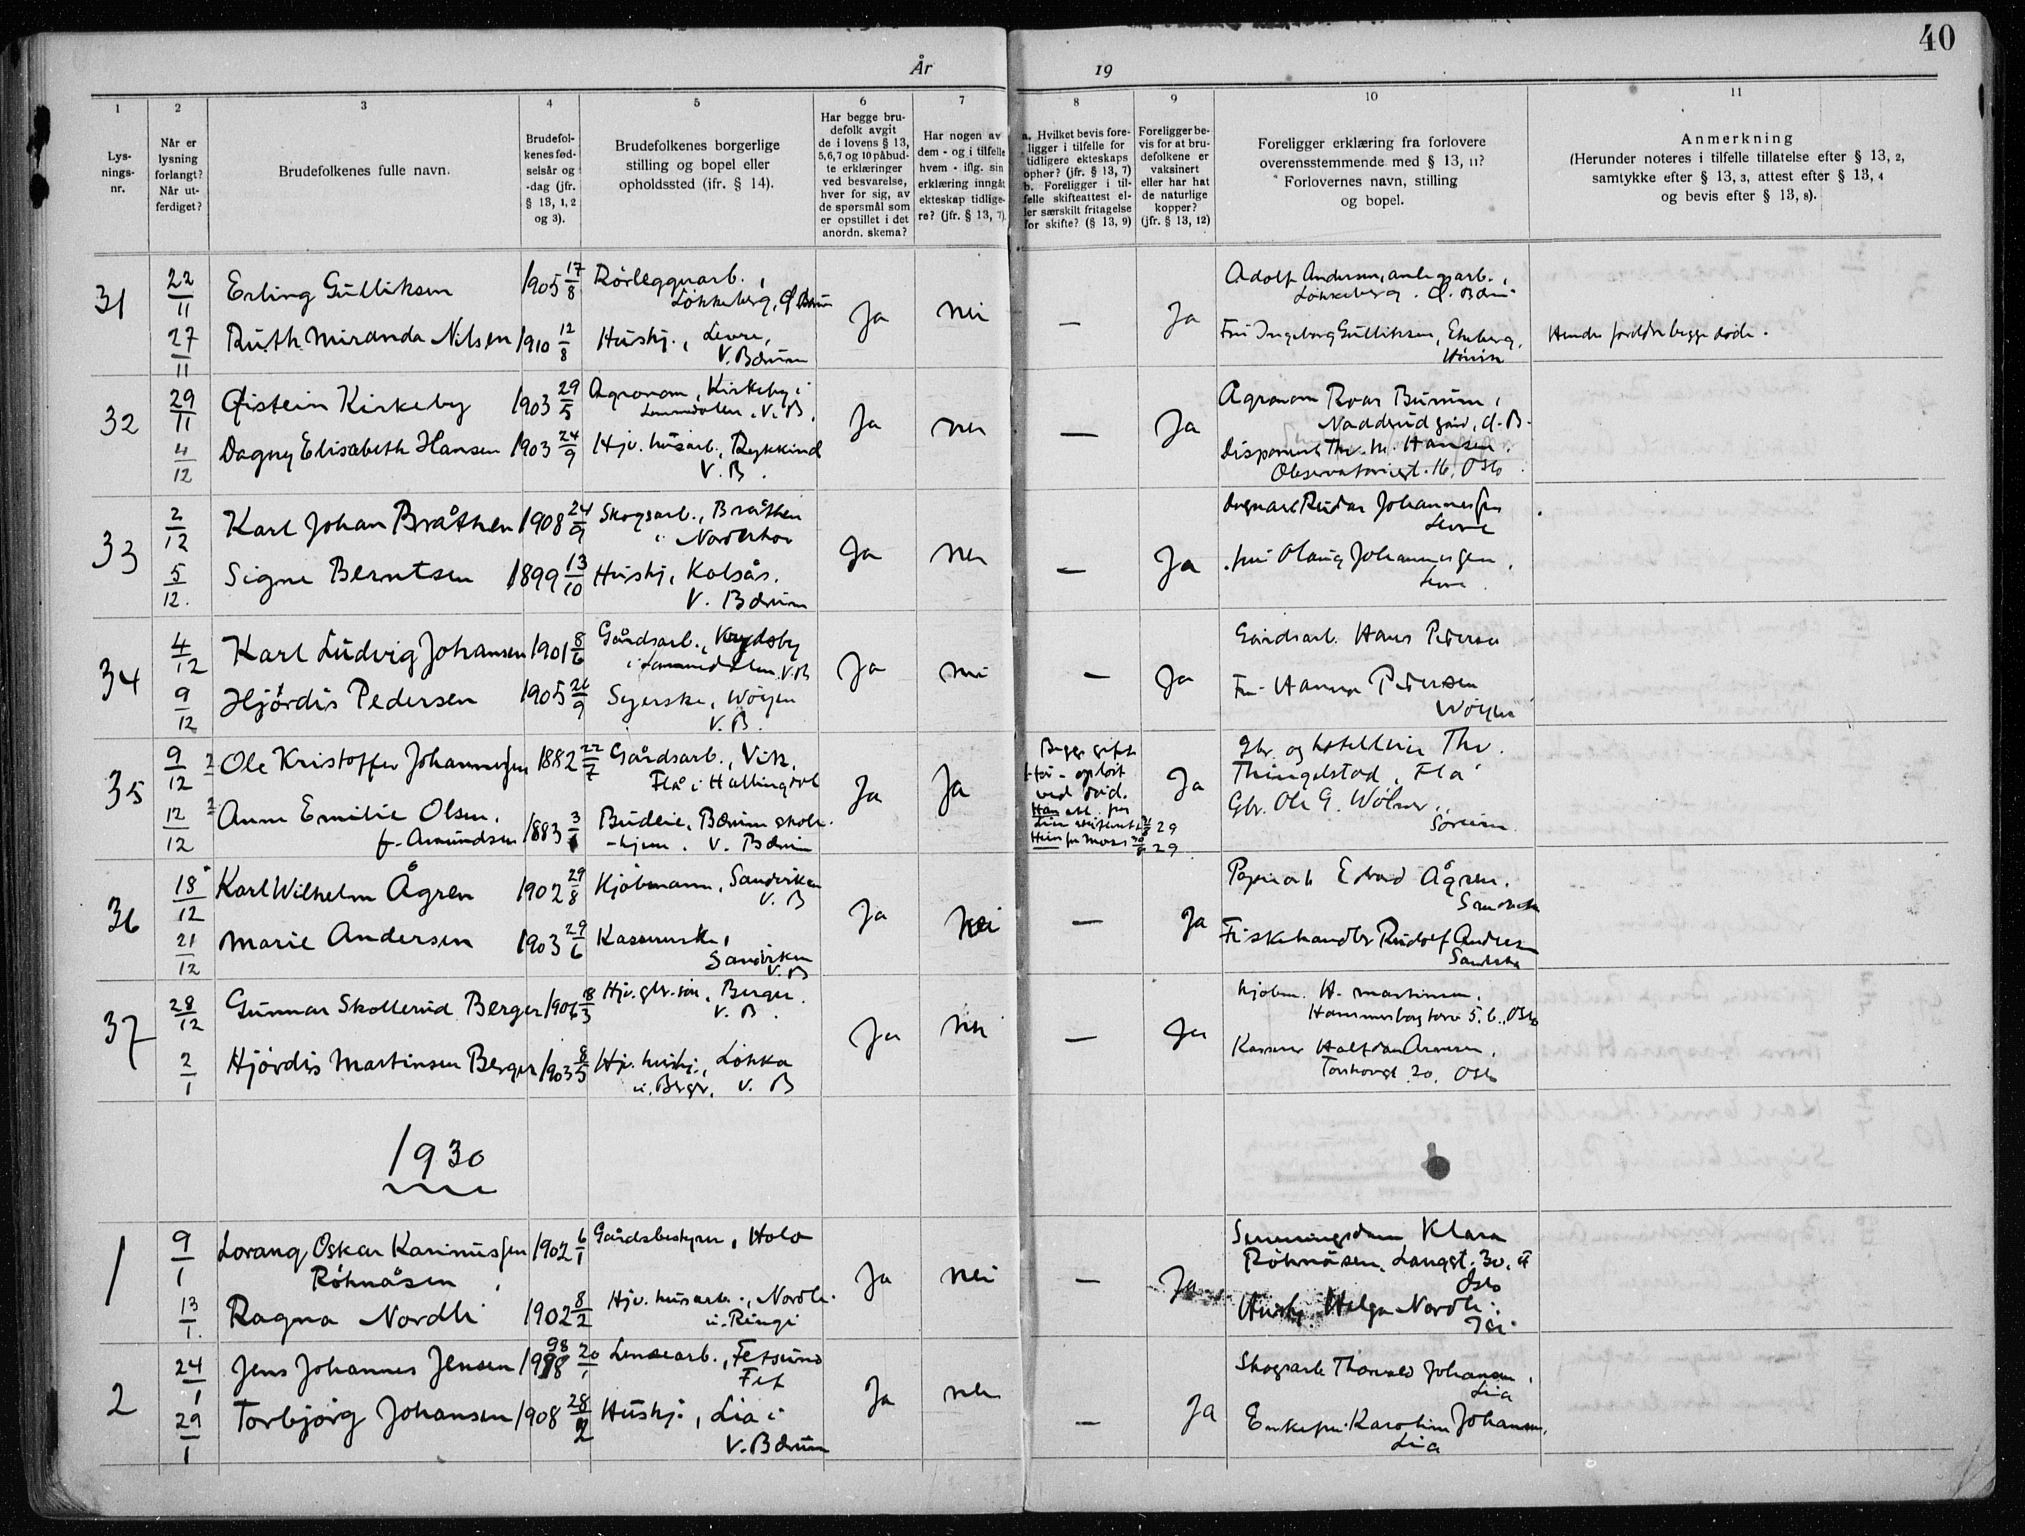 40
År 19
1 2 3 4 5 6 7 8 9 10 11
Lys-
nings-
nr.
Når er
lysning
forlangt?
Når ut-
ferdiget?
Brudefolkenes fulle navn.
Brudefol-
kenes fød-
selsår og
-dag (jfr.
§ 13, 1, 2
og 3).
Brudefolkenes borgerlige
stilling og bopel eller
opholdssted (ifr. § 14).
Har begge bru-
defolk avgit
de i lovens § 13,
5,6,7 og 10 påbud-
te erklæringer
ved besvarelse,
hver for sig, av
de spørsmål som
er opstillet i det
anordn. skema?
Har nogen av
dem - og i tilfelle
hvem - iflg. sin
erklæring inngåt
ekteskap tidlige-
re? (jfr. § 13, 7)
a. Hvilket bevis fore-
ligger i tilfelle for
tidligere ekteskaps
ophør? (jfr. § 13, 7)
b. Foreligger i til-
felle skifteattest el-
ler særskilt fritagelse
for skifte? (§ 13, 9)
Foreligger be-
vis for at bru-
defolkene er
vaksinert
eller har hat
de naturlige
kopper?
(jfr. § 13, 12)
Foreligger erklæring fra forlovere
overensstemmende med § 13, 11?
Forlovernes navn, stilling
og bopel.
Anmerkning
(Herunder noteres i tilfelle tillatelse efter § 13, 2,
samtykke efter § 13, 3, attest efter § 13, 4
og bevis efter § 13, 8).
31 22/11 Erling Gulliksen 1905 17/8 Rørleggerarb.,
Løkkeberg, Ø. Bærum
Ja nei — Ja
Adolf Andersen, anlegsarb.,
Løkkeberg. Ø. Bærum
27/11 Ruth Miranda Nilsen 1910 12/8 Hushj., Levre,
V. Bærum
Fru Ingeborg Gulliksen, Ekeberg,
Høvik
Hendes foreldre begge døde.
32 29/11 Øistein Kirkeby 1903 29/5 Agronom, Kirkeby i
Lommedalen, V. B.
Ja nei — Ja
Agronom Roar Burum,
Nadderud gård, Ø. B.
4/12 Dagny Elisabeth Hansen 1903 24/9 Hjv. husarb., Rykkind
V. B.
Disponent Thv. M. Hansen.
Observatoriegt. 16, Oslo
33 2/12 Karl Johan Bråthen 1908 24/9 Skogsarb., Bråthen
i Norderhov
Ja nei — Ja
Reidar Johannessen
Levre
5/12. Signe Berntsen 1899 13/10 Hushj, Kolsås.
V. Bærum
fru Olaug Johannessen,
Levre
34 4/12 Karl Ludvig Johansen 1901 8/6 Gårdsarb.,
i Lommedalen V. B
Ja nei — Ja
Gårdsarb. Hans Pedersen
9/12 Hjørdis Pedersen 1905 26/9 Syerske, Wøyen
V. B.
Fru Hanna Petersen
Wøyen
35 9/12 2 Ole Kristoffer Johannessen 1882 22/7 Gårdsarb., Vik,
Flå i Hallingdal
Ja Ja
Begge gift
før - opløst
ved død.
Han att. fra
Lier skifterett 29
Hun fra Moss 29
Ja
Gbr. og hotelleier Thv.
Thingelstad, Flå
Gbr. Ole G. Wølner,
Sørum
12/12 2 Anne Emilie Olsen,
f. Amundsen 1883 3/1 Budeie, Bærum skole-
-hjem. V. Bærum
36 18/12 Karl Wilhelm Ågren 1902 29/8 Kjøbmann, Sandviken
V. B
Ja nei — Ja
Papirarb Edvard Ågren.
Sandvika
21/12 Marie Andersen 1903 29/6 Kassererske,
Sandviken
V. B
Fiskehandler Rudolf Andersen
Sandvika
37 28/12 Gunnar Skollerud Berger 1906 18/3 Hjv. gbr. søn, Berger.
V. B.
Ja nei — Ja
Kjøbm. H. Martinsen.
Hammersborg torv 5. b., Oslo
2/1 Hjørdis Martinsen Berger 1903 8/5 Hjv. hushj., Løkka
u. Berger. V. B
Kasserer Halfdan Arnesen.
Torshovgt. 20. Oslo
1930
1 9/1 Lorang Oskar Karinussen
Röhnåsen 1902 6/1 Gårdsbestyrer, Holo
Ja nei — Ja
Klara
Röhnåsen, Langgt. 30. II
Oslo
13/1. Ragna Nordli 1902 8/2 Hjv. husarb., Nordli
u. Ringi
Hushj. Helga Nordli.
2 24/1 Jens Johannes Jensen 1898 20/1 Lensearb., Fetsund
Fet
Ja nei — Ja
Skogsarb Thorvald Johansen,
Lia
29/1 Torbjörg Johansen 1908 28/2 Hushj., Lia i
V. Bærum
Enkefru Karoline Johansen,
Lia